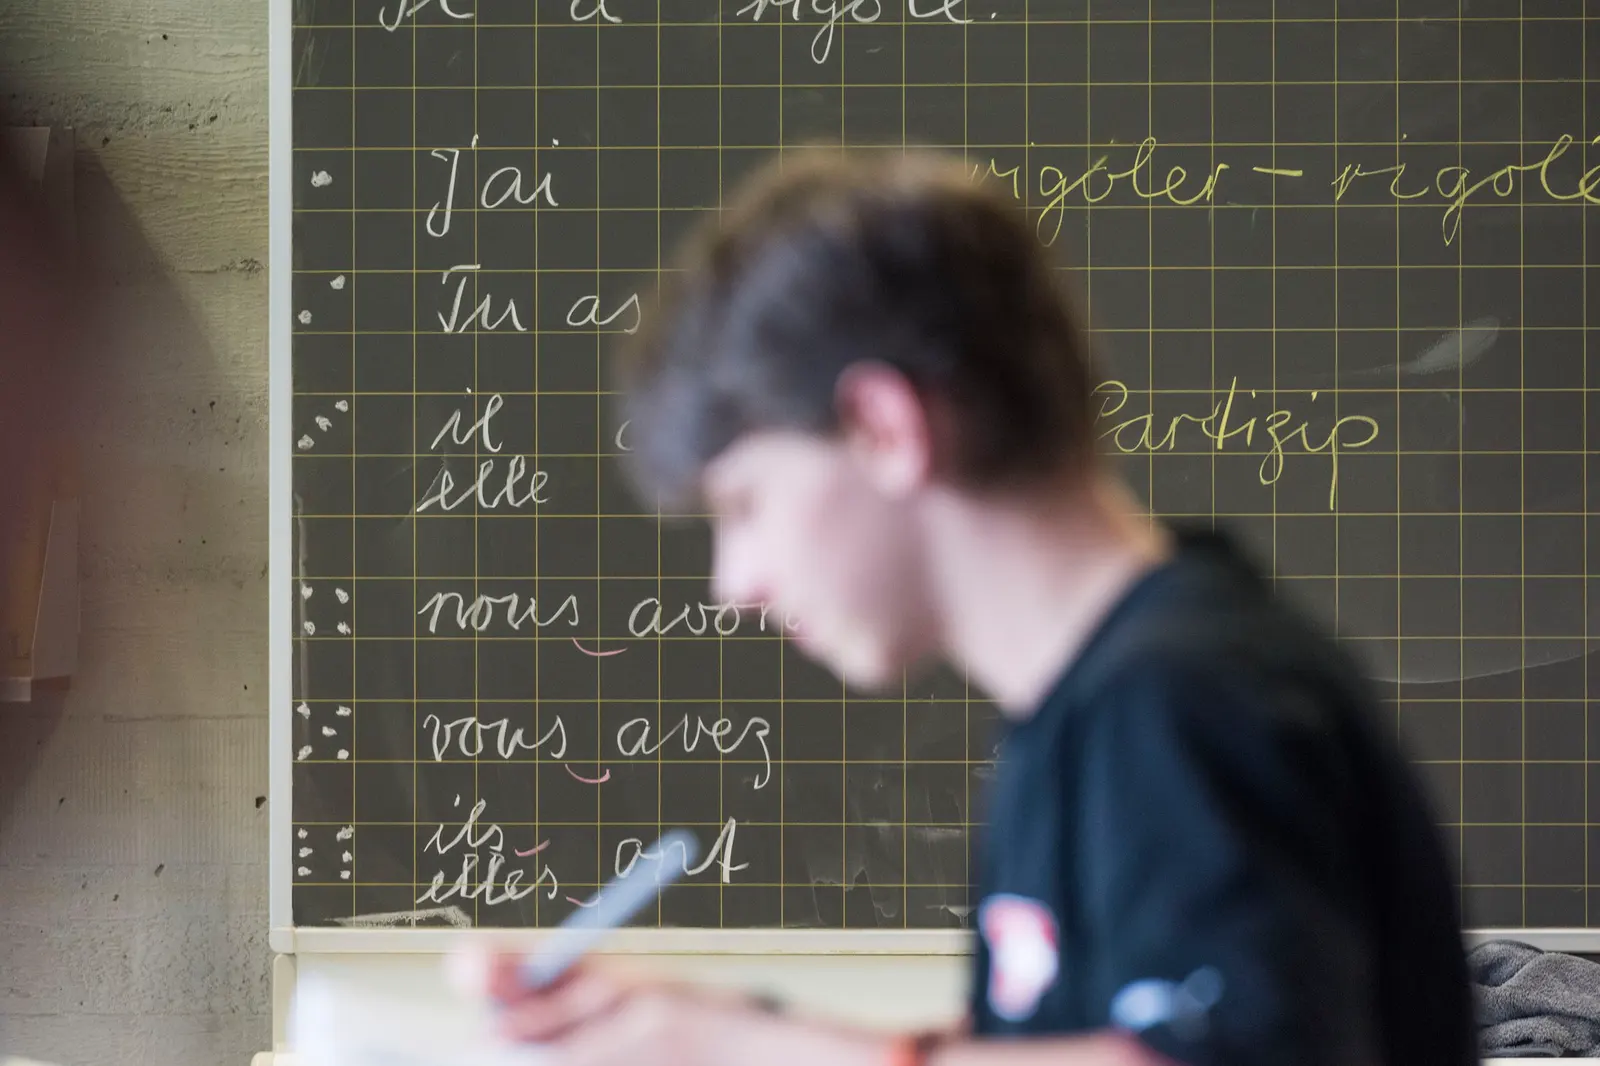 a rigolé.
J'ai
rigoler – rigolé
Tu as
il
elle
Partizip
nous
vous avez
ils
elles ont